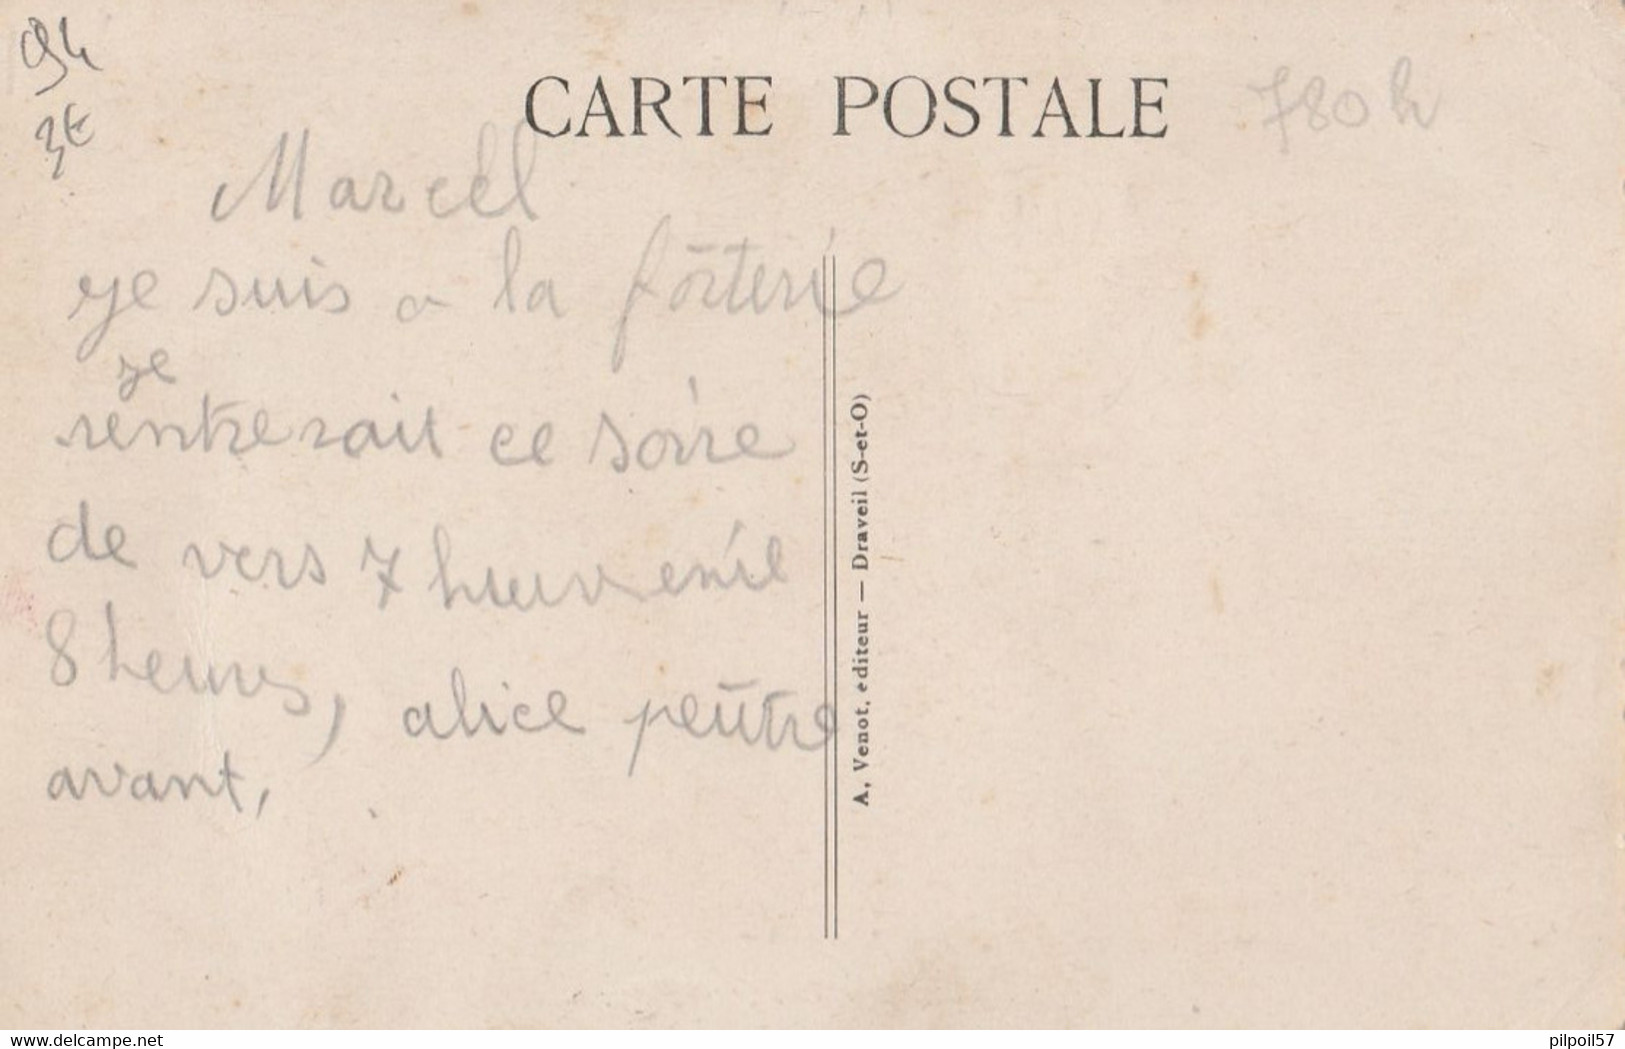 94
3€
CARTE POSTALE
780 h
Marcel
je suis a la forterie
je
rentrerait ce soire
de vers 7
8 heures, alice peutre
avant,
A, Venot, editeur — Draveil (S-et-O)
delcampe.net
pilpoil57